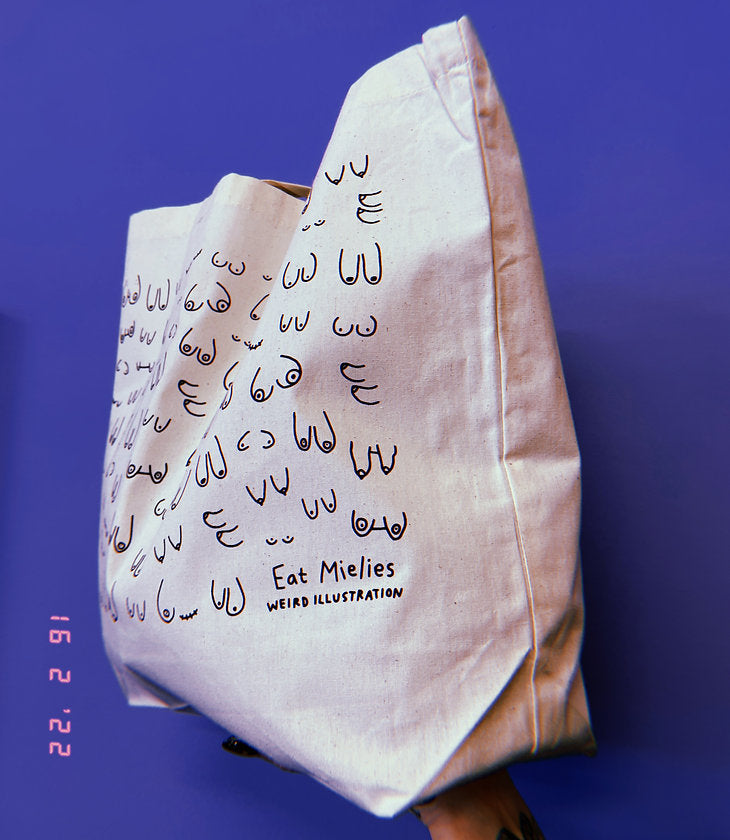 Eat Mielies
WEIRD ILLUSTRATION
16 2 '22